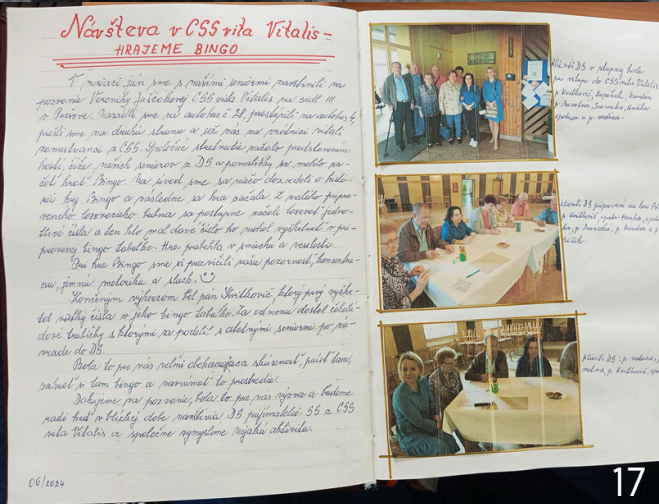 Návšteva v CSS vita Vitalis -
HRAJEME BINGO
V mesiaci jún sme s našimi seniormi navštívili na
pozvanie Veroniky CSS vita Vitalis na sídl. III.
v Prešove. sme na autobus č. 28, prestúpili na autobus 4,
prešli sme na druhú stranu a už nás na vrátnici vítali
zamestnanci z CSS. Spoločné stretnutie začalo predstavením
hostí, čiže našich seniorov z DS a pomaličky sa mohlo za-
čať hrať Bingo. Na úvod sme sa niečo dozvedeli o histó-
rii hry Bingo a následne sa hra začala. Z malého pripra-
veného losovacieho bubna sa postupne začali losovať jedno-
tlivé čísla a ten kto mal dané číslo ho mohol vyškrtnúť v pri-
pravenej bingo tabuľke. Hra prebehla v smiechu a veselosti.
Pri hre Bingo sme si precvičili našu pozornosť, koncentrá-
ciu, jemnú motoriku a sluch.
Konečným výhercom bol pán Kvitkovič, ktorý prvý vyškr-
tol všetky čísla v jeho bingo tabuľke. Za odmenu dostal čokolá-
dové s ktorými sa podelil s ostatnými seniormi po ná-
vrate do DS.
Bola to pre nás veľmi obohacujúca skúsenosť, prísť tam,
zahrať si tam bingo a navnímať to prostredie.
Ďakujeme za pozvanie, bola to pre nás výzva a budeme
radi keď v blízkej dobe navštívia DS prijímatelia SS z CSS
vita Vitalis a spoločne vymyslíme nejakú aktivitu.
06/2024
Klienti DS v plnej
pri vstupe do CSS vita Vitalis
p. Kvitkovič,
spolu s p. vedúcou
Klienti DS pripravení na hru
p. Kvitkovič,
Klienti DS: p. vedúca,
p. Kvitkovič,
17